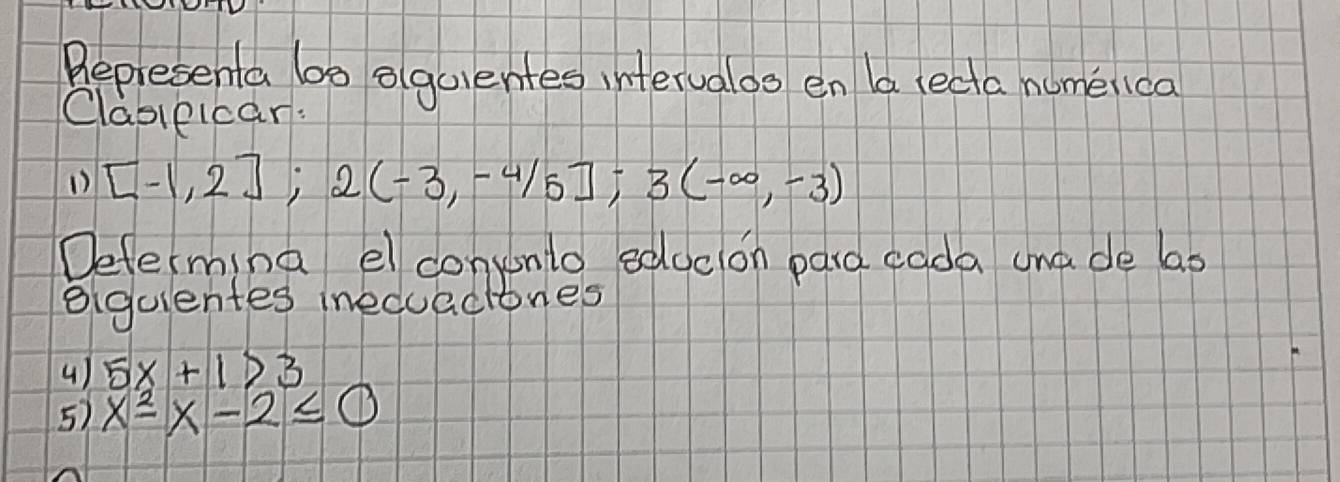 Representa los siguientes intervalos en la recta numérica
Clasificar:
1) [-1, 2] ; 2(-3, -4/5] ; 3(-∞, -3)
Determina el conjunto solución para cada una de las
siguientes inecuaciones
4) 5x + 1 > 3
5) x² - x - 2 ≤ 0